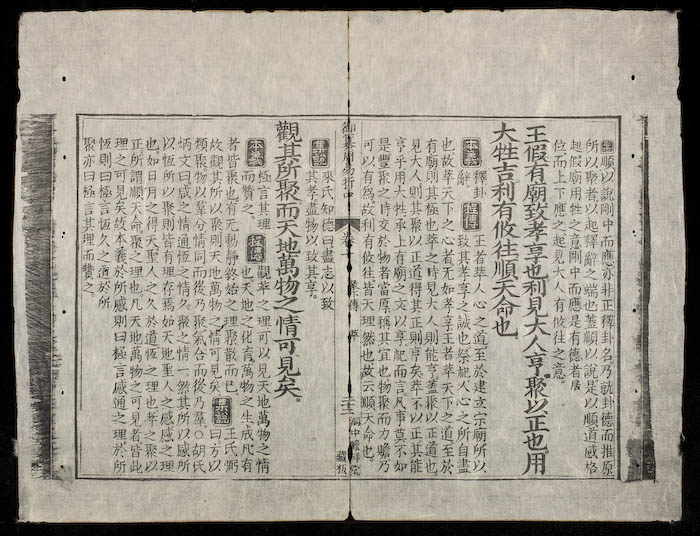 順以說剛中而應亦非正釋卦名乃就卦德而推原
所以聚者以起釋辭之端也蓋順以說是以順道感格
起假廟用牲之意剛中而應是有德者居
位而上下應之起見大人有攸往之意。
王假有廟致孝享也利見大人亨聚以正也用
大牲吉利有攸往順天命也
本義 釋卦辭。 程傳 王者萃人心之道至於建立宗廟所以
致其孝享之誠也祭祀人心之所自盡
也故萃天下之心者无如孝享王者萃天下之道至於
有廟則其極也萃之時見大人則能亨蓋聚以正道也
見大人則其聚以正道得其正則亨矣萃不以正其能
亨乎用大牲承上有廟之文以享祀而言凡事莫不如
是豐聚之時交於物者當厚稱其宜也物聚而力贍乃
可以有為故利有攸往皆天理然也故云順天命也。
御纂周易折中 卷十 彖傳 萃 二十三 藏板
集說 來氏知德曰盡志以致
其孝盡物以致其享。
觀其所聚而天地萬物之情可見矣。
本義 極言其理而贊之。 程傳 觀萃之理可以見天地萬物之情
也天地之化育萬物之生成凡有
者皆聚也有无動靜終始之理聚散而已
故觀其所以聚則天地萬物之情可見矣 集說 王氏弼曰方以
類聚物以羣分情同而後乃聚氣合而後乃羣○胡氏
炳文曰咸之情通恆之情久聚之情一然其所以感所
以恆所以聚則皆有理存焉如天地聖人之感感之理
也如日月之得天聖人之久於道恆之理也萃之聚以
正所謂順天命聚之理也凡天地萬物之可見者皆此
理之可見矣故本義於所感則曰極言感通之理於所
恆則曰極言恆久之道於所
聚亦曰極言其理而贊之。